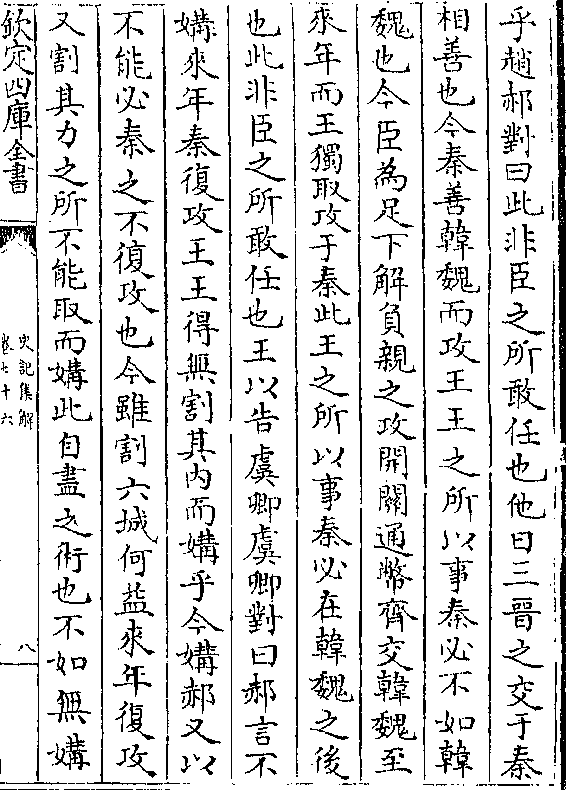 乎趙郝對曰此非臣之所敢任也他日三晉之交于秦
相善也今秦善韓魏而攻王王之所以事秦必不如韓
魏也今臣為足下解負親之攻開關通幣齊交韓魏至
來年而王獨取攻于秦此王之所以事秦必在韓魏之後
也此非臣之所敢任也王以告虞卿虞卿對曰郝言不
媾來年秦復攻王王得無割其内而媾乎今媾郝又以
不能必秦之不復攻也今雖割六城何益來年復攻
又割其力之所不能取而媾此自盡之術也不如無媾
欽定四庫全書
史記集解
卷七十六
八